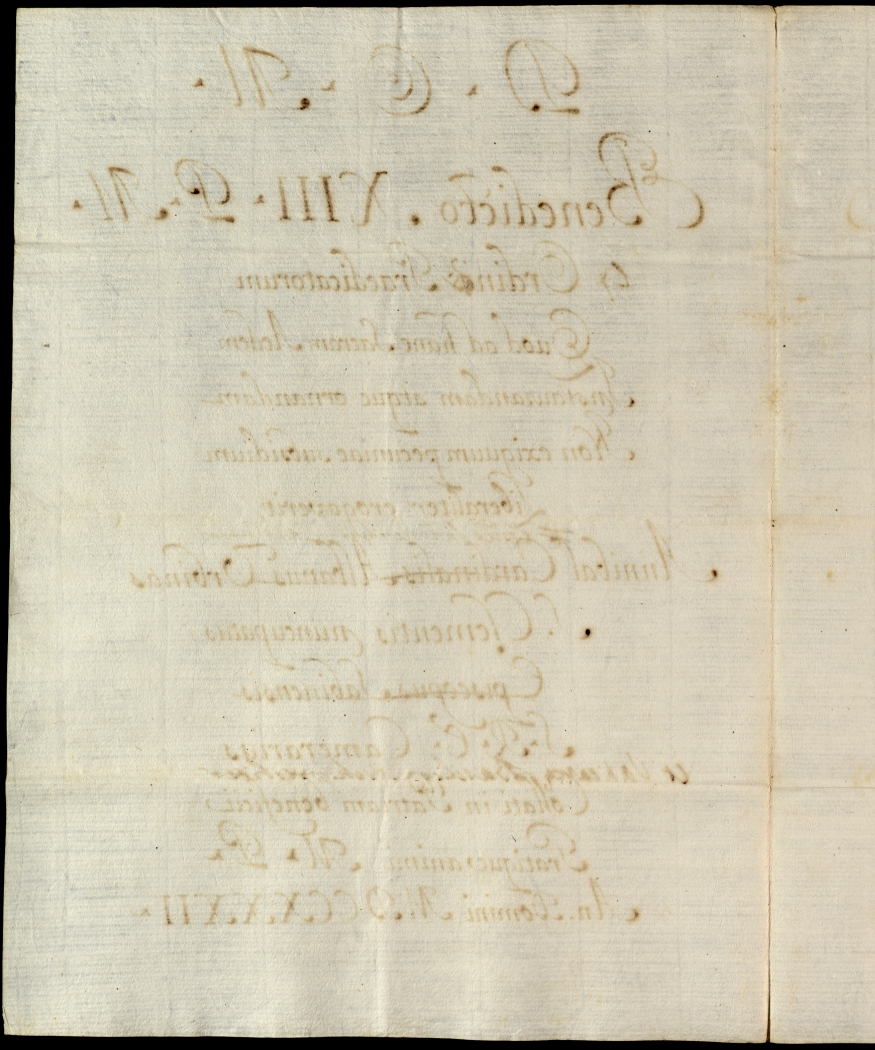 D · O · M ·
Benedicto · XIII · P · M ·
Ordinis Praedicatorum
Quod ad hanc Sacram Aedem
Instaurandam atque ornandam
Non exiguum pecuniae subsidium
Liberaliter erogaverit
Annibal Cardinalis Albanus Urbinas
S. Clementis nuncupatus
Episcopus Sabinensis
S. R. E. Camerarius
Collati in Patriam beneficii
Gratique animi M · P ·
An. Domini M.D.CCXXXII ·